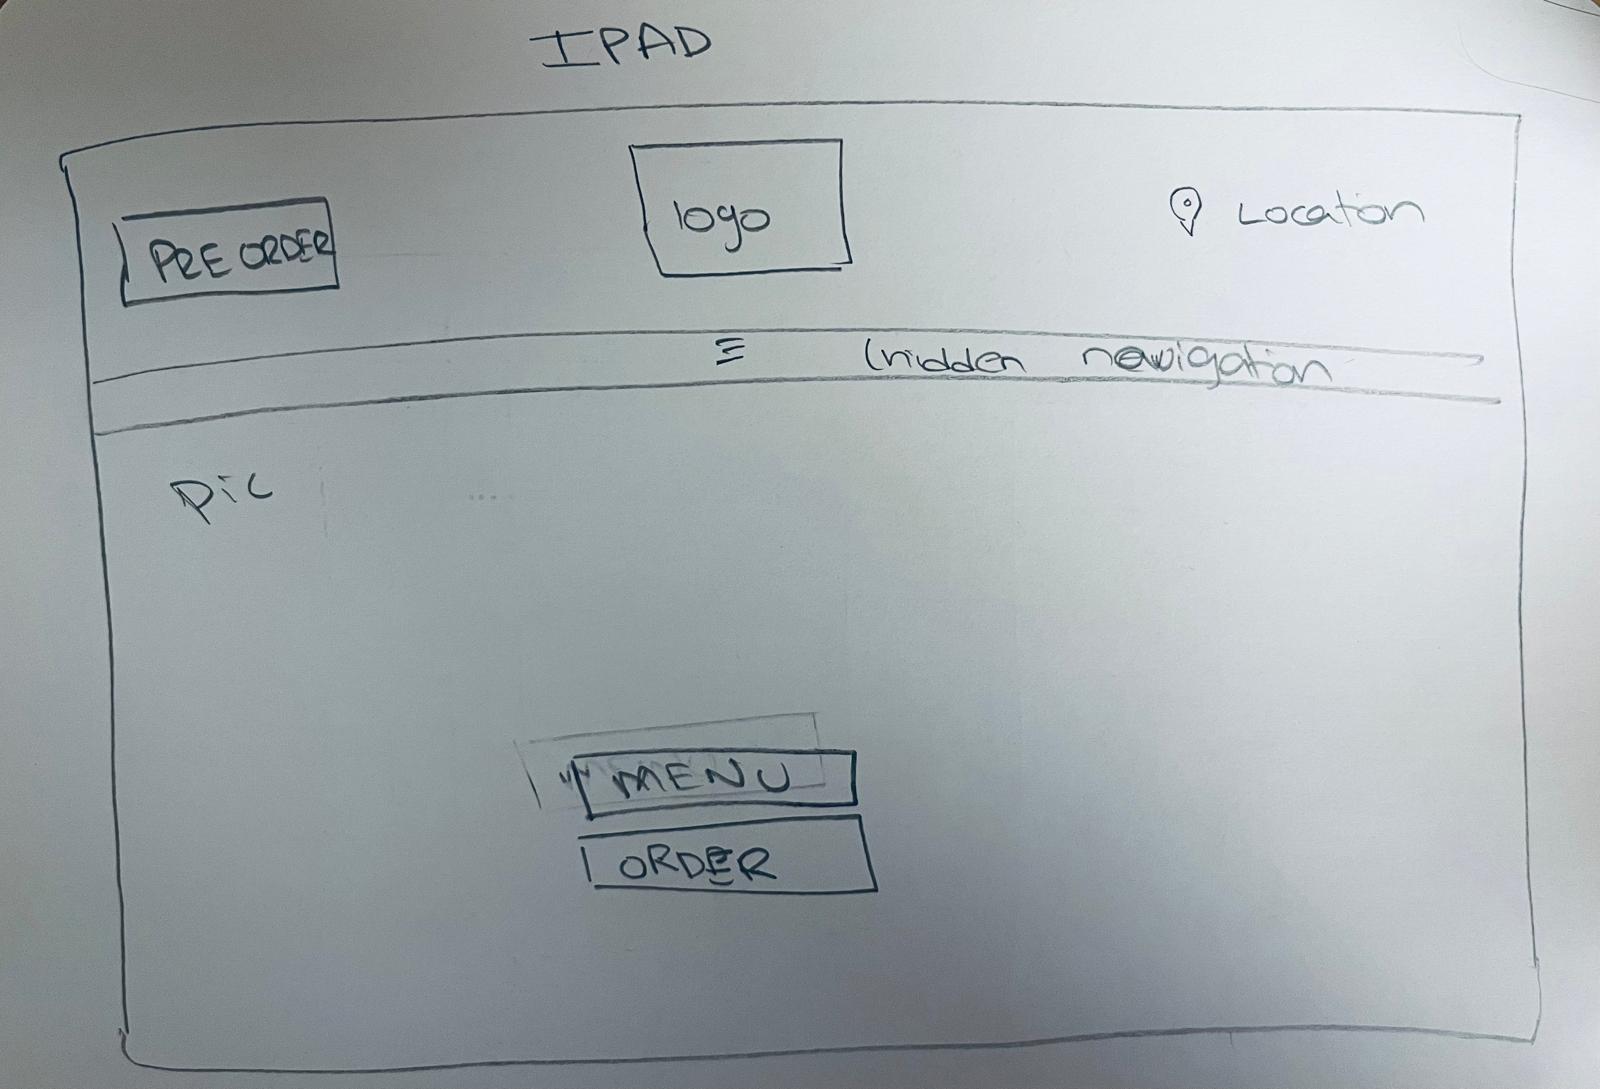 IPAD
PRE ORDER
logo
Location
(hidden navigation
pic
MENU
ORDER